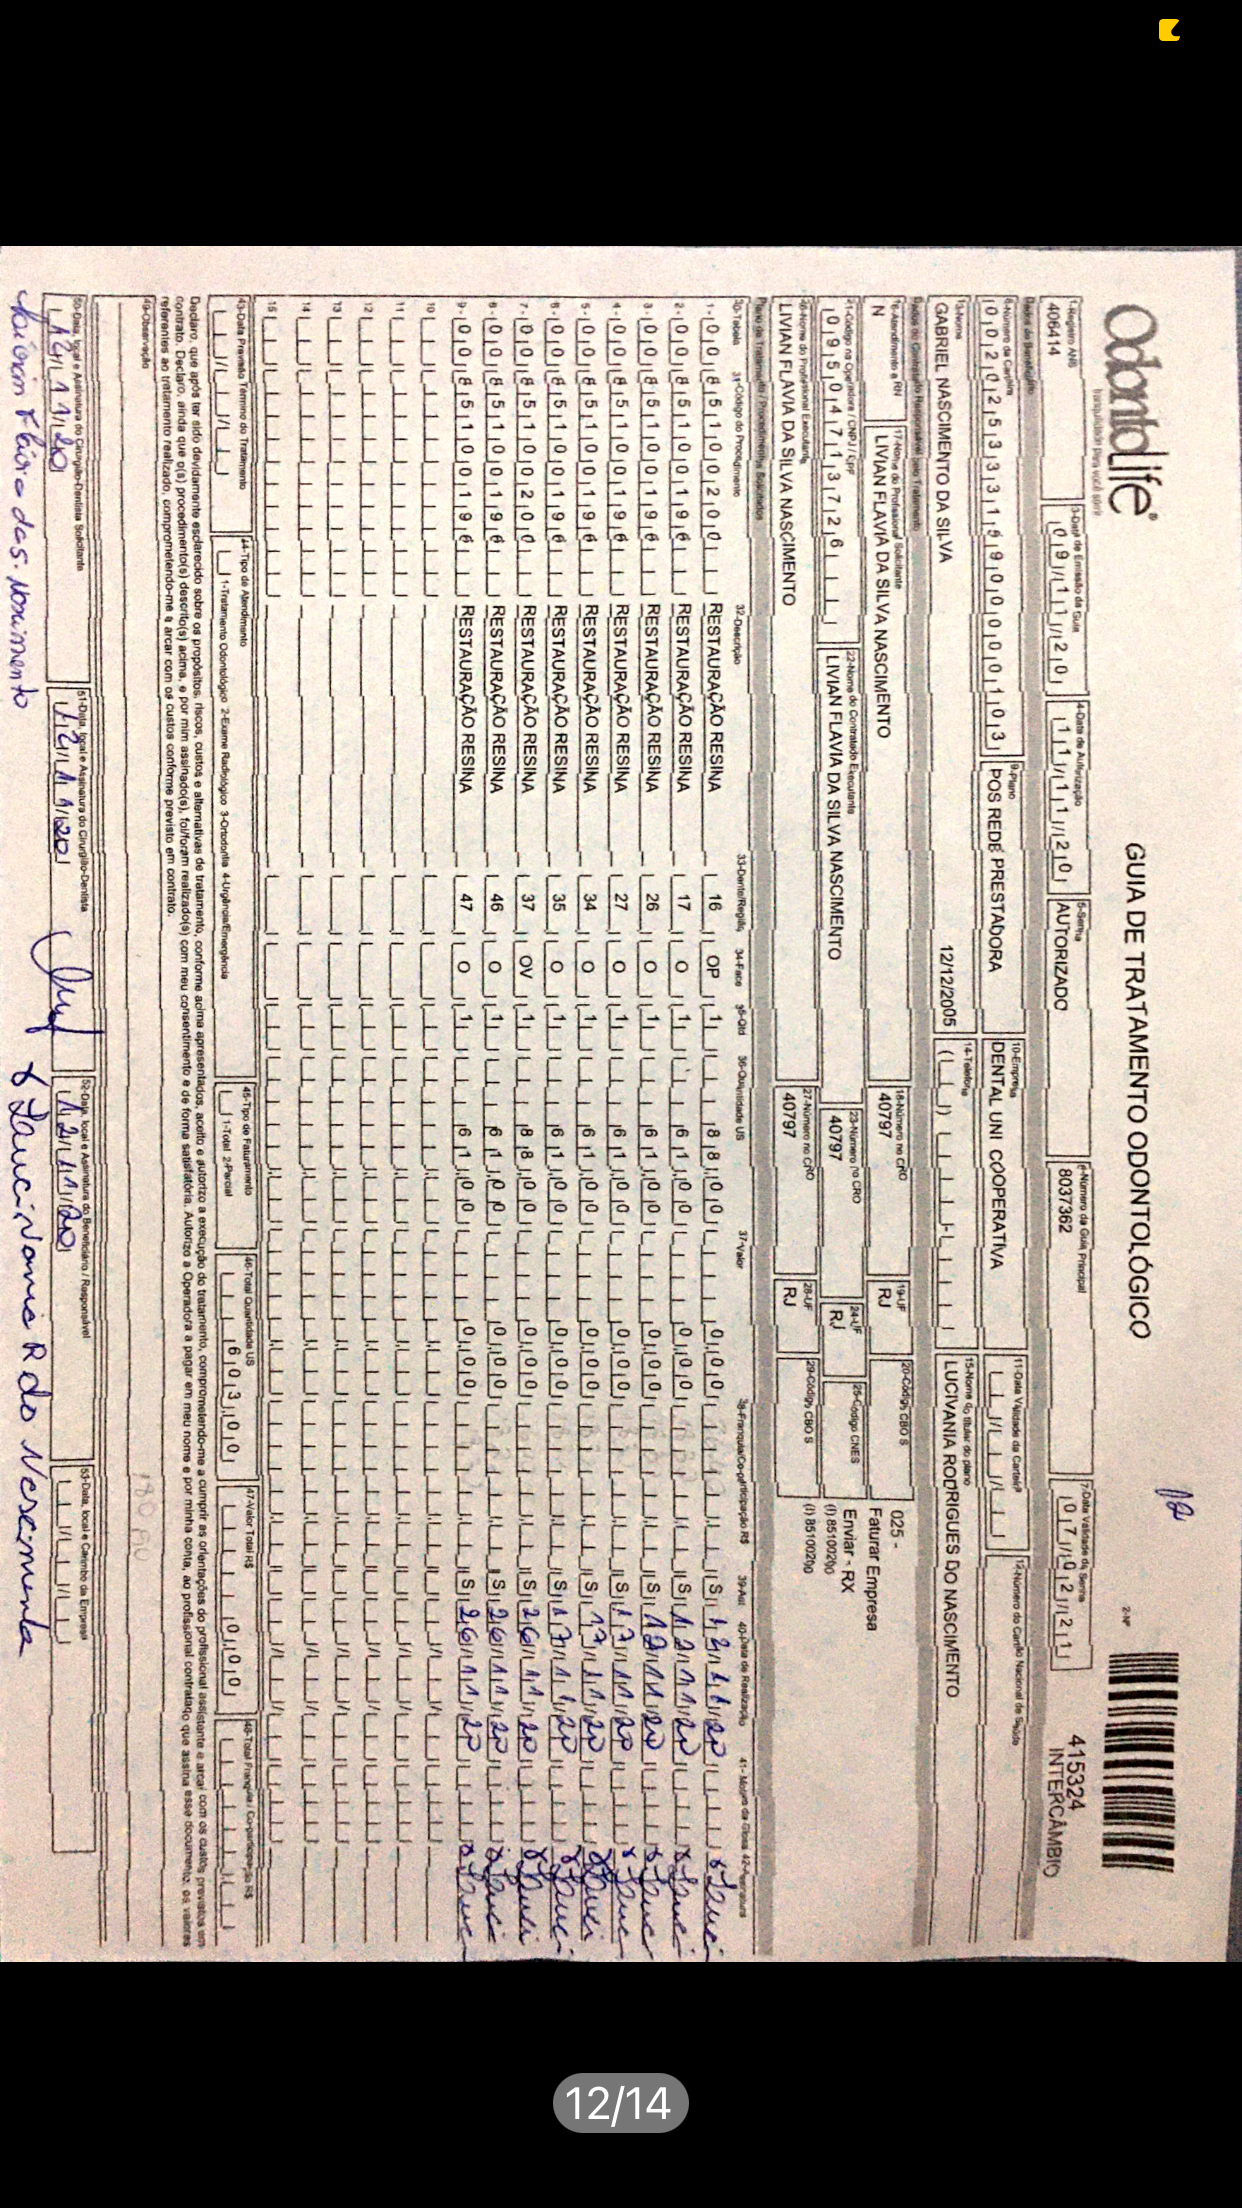 12
OdontoLife®
Tranquilidade para você sorrir
GUIA DE TRATAMENTO ODONTOLÓGICO
2-Nº
415324
INTERCÂMBIO
1-Registro ANS
406414
3-Data de Emissão da Guia
09/11/20
4-Data de Autorização
11/11/20
5-Senha
AUTORIZADO
6-Número da Guia Principal
8037362
7-Data Validade da Senha
07/02/21
Dados do Beneficiário
8-Número da Carteira
00202533315900000103
9-Plano
POS REDE PRESTADORA
10-Empresa
DENTAL UNI COOPERATIVA
11-Data Validade da Carteira
12-Número do Cartão Nacional de Saúde
13-Nome
GABRIEL NASCIMENTO DA SILVA
12/12/2005
14-Telefone
15-Nome do titular do plano
LUCIVANIA RODRIGUES DO NASCIMENTO
Dados do Contratado Responsável pelo Tratamento
16-Atendimento a RN
N
17-Nome do Profissional Solicitante
LIVIAN FLAVIA DA SILVA NASCIMENTO
18-Número no CRO
40797
19-UF
RJ
20-Código CBO S
025 -
Faturar Empresa
21-Código na Operadora / CNPJ / CPF
09504713726
22-Nome do Contratado Executante
LIVIAN FLAVIA DA SILVA NASCIMENTO
23-Número no CRO
40797
24-UF
RJ
25-Código CNES
Enviar - RX
(I) 85100200
(I) 85100200
26-Nome do Profissional Executante
LIVIAN FLAVIA DA SILVA NASCIMENTO
27-Número no CRO
40797
28-UF
RJ
29-Código CBO S
Plano de Tratamento / Procedimentos Solicitados
30-Tabela 31-Código do Procedimento 32-Descrição 33-Dente/Região 34-Face 35-Qtd 36-Quantidade US 37-Valor 38-Franquia/Co-participação R$ 39-Aut 40-Data de Realização 41-Motivo da Glosa 42-Assinatura
1- 00 85100200 RESTAURAÇÃO RESINA 16 OP 1 88,00 0,00 S
2- 00 85100196 RESTAURAÇÃO RESINA 17 O 1 61,00 0,00 S 12/11/20
3- 00 85100196 RESTAURAÇÃO RESINA 26 O 1 61,00 0,00 S 12/11/20
4- 00 85100196 RESTAURAÇÃO RESINA 27 O 1 61,00 0,00 S 17/11/20
5- 00 85100196 RESTAURAÇÃO RESINA 34 O 1 61,00 0,00 S 17/11/20
6- 00 85100196 RESTAURAÇÃO RESINA 35 O 1 61,00 0,00 S 17/11/20
7- 00 85100200 RESTAURAÇÃO RESINA 37 OV 1 88,00 0,00 S 26/11/20
8- 00 85100196 RESTAURAÇÃO RESINA 46 O 1 61,00 0,00 S 26/11/20
9- 00 85100196 RESTAURAÇÃO RESINA 47 O 1 61,00 0,00 S 26/11/20
10
11
12
13
14
15
43-Data Previsão Término do Tratamento
44-Tipo de Atendimento
1-Tratamento Odontológico 2-Exame Radiológico 3-Ortodontia 4-Urgência/Emergência
45-Tipo de Faturamento
1-Total 2-Parcial
46-Total Quantidade US
603,00
47-Valor Total R$
0,00
48-Total Franquia / Co-participação R$
Declaro, que após ter sido devidamente esclarecido sobre os propósitos, riscos, custos e alternativas de tratamento, conforme acima apresentados, aceito e autorizo a execução do tratamento, comprometendo-me a cumprir as orientações do profissional assistente e arcar com os custos previstos em
contrato. Declaro, ainda que o(s) procedimento(s) descrito(s) acima, e por mim assinado(s), foi/foram realizado(s) com meu consentimento e de forma satisfatória. Autorizo a Operadora a pagar em meu nome e por minha conta, ao profissional contratado que assina esse documento, os valores
referentes ao tratamento realizado, comprometendo-me a arcar com os custos conforme previsto em contrato.
49-Observação
50-Data, local e Assinatura do Cirurgião-Dentista Solicitante
12/11/20
51-Data, local e Assinatura do Cirurgião-Dentista
12/11/20
52-Data, local e Assinatura do Beneficiário / Responsável
12/11/20
53-Data, local e Carimbo da Empresa
Livian Flávia da S. Nascimento
x Lucivania R do Nascimento
12/14